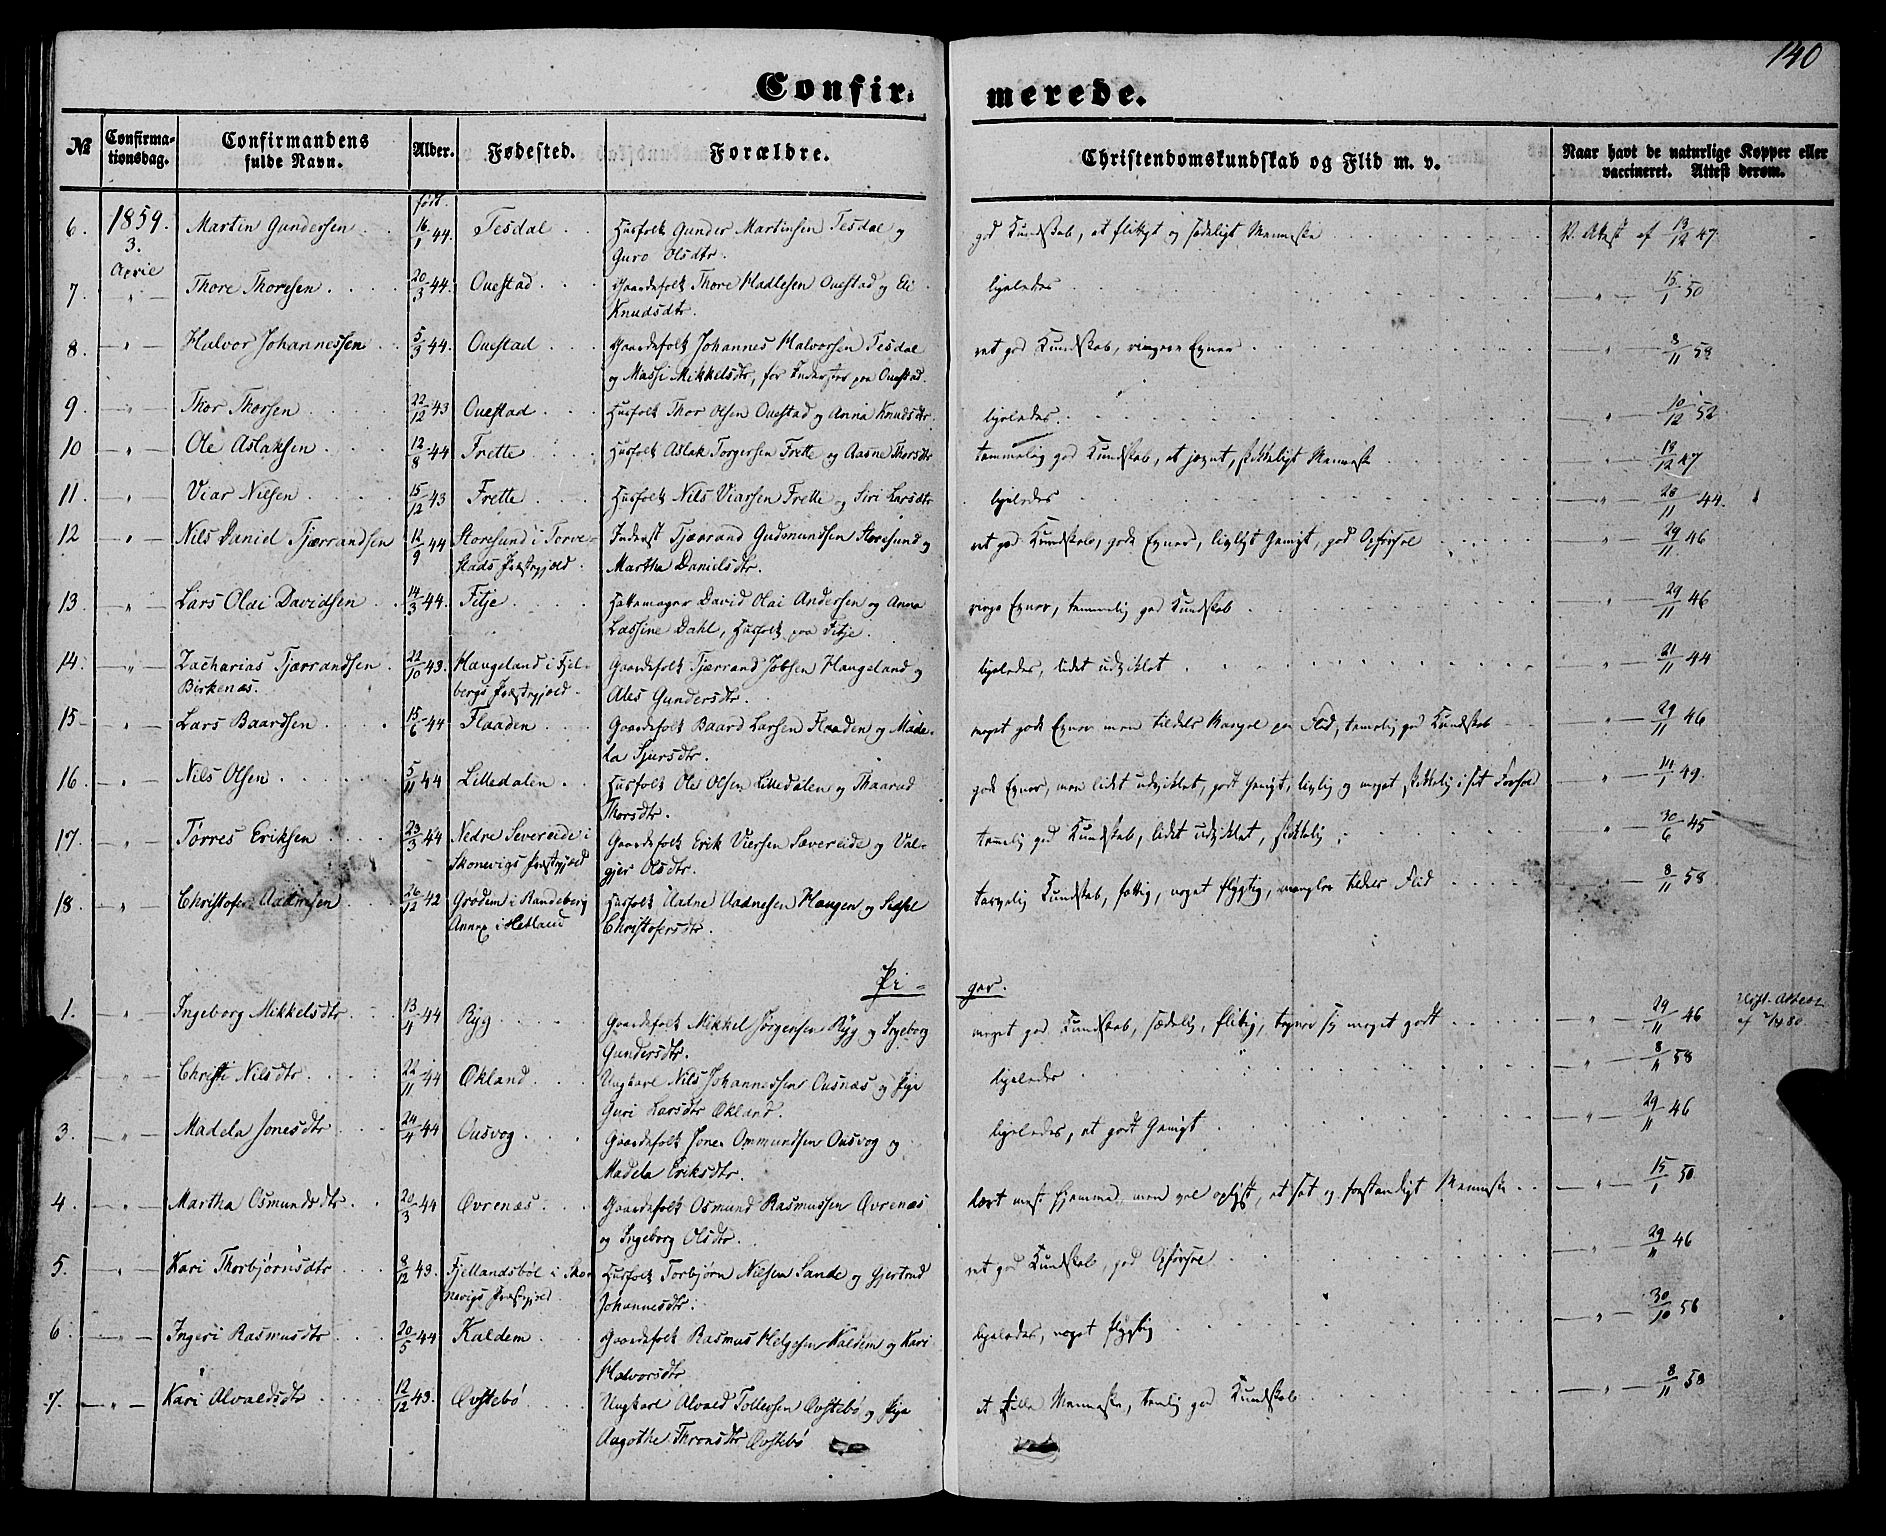 140
Confir- merede.
№ Confirma- Confirmandens Alder. Fødested. Forældre. Christendomskundskab og Flid m. v. Naar havt de naturlige Kopper eller
tionsdag. fulde Navn. vaccineret. Attest derom.
født.
6. 1859. Martin Gundersen 16/1 44. Tesdal Husfolk Gunder Martinsen Tesdal og god Kundskab, et flittigt og sædeligt Menneske V. Attest af 13/12 47.
3. April Guro Olsdtr.
7. " Thore Thoresen 20/3 44. Ouestad Gaardefolk Thore Hadlesen Ouestad og Eli ligeledes " 15/1 50
Knudsdtr.
8. " Halvor Johannessen 5/3 44. Ouestad Gaardefolk Johannes Halvorsen Tesdal ret god Kundskab, ringere Evner " 8/11 58
og Massi Mikkelsdtr, før Inderster paa Ouestad.
9. " Thor Thorsen 22/12 43 Ouestad Husfolk Thor Olsen Ouestad og Anna Knudsdtr. ligeledes. " 10/12 52
10 " Ole Aslaksen 12/8 44 Frette Husfolk Aslak Torgersen Frette og Aasne Thorsdtr temmelig god Kundskab, et jævnt, skikkeligt Menneske " 18/12 47
11. " Viar Nilsen 15/12 43 Frette Husfolk Nils Viarsen Frette og Siri Larsdtr ligeledes " 28/11 44.
12 " Nils Daniel Tjærrandsen 12/9 44 Storesund i Torve- Inderst Tjærrand Gudmundsen Storesund og ret god Kundskab, gode Evner, livligt Gemyt, god Opførsel " 29/11 46
stads Præstegjeld. Martha Danielsdtr.
13 " Lars Olai Davidsen 14/3 44. Fitje Hattemager David Olai Andersen og Anna ringe Evner, temmelig god Kundskab " 29/11 46
Lassine Dahl, Husfolk paa Fitje.
14. " Zacharias Tjærrandsen 22/10 43. Haugeland i Fjel- Gaardefolk Tjærrand Jobsen Haugeland og ligeledes, lidet udviklet " 21/11 44
Birkenæs. bergs Præstegjeld. Ales Gundersdtr.
15 " Lars Baardsen 15/6 44 Flaaden Gaardefolk Baard Larsen Flaaden og Made- meget gode Evner men tildels Mangel paa Flid, temmelig god Kundskab " 29/11 46
la Sjursdtr.
16. " Nils Olsen 5/11 44 Lilledalen Husfolk Ole Olsen Lilledalen og Thaarud gode Evner, men lidet udviklet, godt Gemyt, livlig og meget skikkelig i sit Forhold " 14/1 49.
Thorsdtr.
17. " Torres Eriksen 23/3 44 Nedre Severeide i Gaardefolk Erik Viersen Sævereide og Val- temmelig god Kundskab, lidet udviklet, skikkelig " 30/6 45
Skonevigs Præstegjeld gjer Olsdtr.
18. " Christofer Aadnesen 26/12 42 Grødem i Randeberg Husfolk Aadne Aadnesen Haugen og Sidsel tarvelig Kundskab, fattig, noget flygtig, mangler tildels Flid " 8/11 58
Annex i Hetland Christofersdtr.
Pi- ger.
1. " Ingeborg Mikkelsdtr 13/4 44 Ryg Gaardefolk Mikkel Jørgensen Ryg og Ingeborg meget god Kundskab, sædelig, flittig, tegner sig meget godt " 29/11 46
Gundersdtr.
" Christi Nilsdtr 22/11 44 Økland Ungkarl Nils Johannessen Ousnæs og Pige ligeledes " 8/11 58
Guri Larsdtr Økland.
3. " Madela Jonesdtr 24/4 44 Ousvog Gaardefolk Jone Ommundsen Ousvog og ligeledes, et godt Gemyt " 29/11 46
Madela Eriksdtr.
4 " Martha Osmundsdtr 20/3 44 Øvrenæs Gaardefolk Osmund Rasmussen Øvrenæs lært mest hjemme, men vel oplyst, et sat og forstandigt Menneske " 15/1 50
og Ingeborg Olsdtr.
5. " Kari Thorbjørnsdtr 8/12 43. Fjellandsbøl i Sko- Husfolk Torbjørn Nilsen Sande og Gjertrud ret god Kundskab, god Opførsel " 29/11 46
nevigs Præstegjeld. Johannesdtr.
6 " Ingeri Rasmusdtr 20/5 44 Kaldem Gaardefolk Rasmus Helgesen Kaldem og Kari ligeledes, noget flygtig " 30/10 56
Halvorsdtr
7. " Kari Alvaldsdtr 12/12 43. Øvstebø Ungkarl Alvald Tollevsen Øvstebø og Pige et stille Menneske, temlig god Kundskab " 8/11 58
Aagothe Thronsdtr Øvstebø